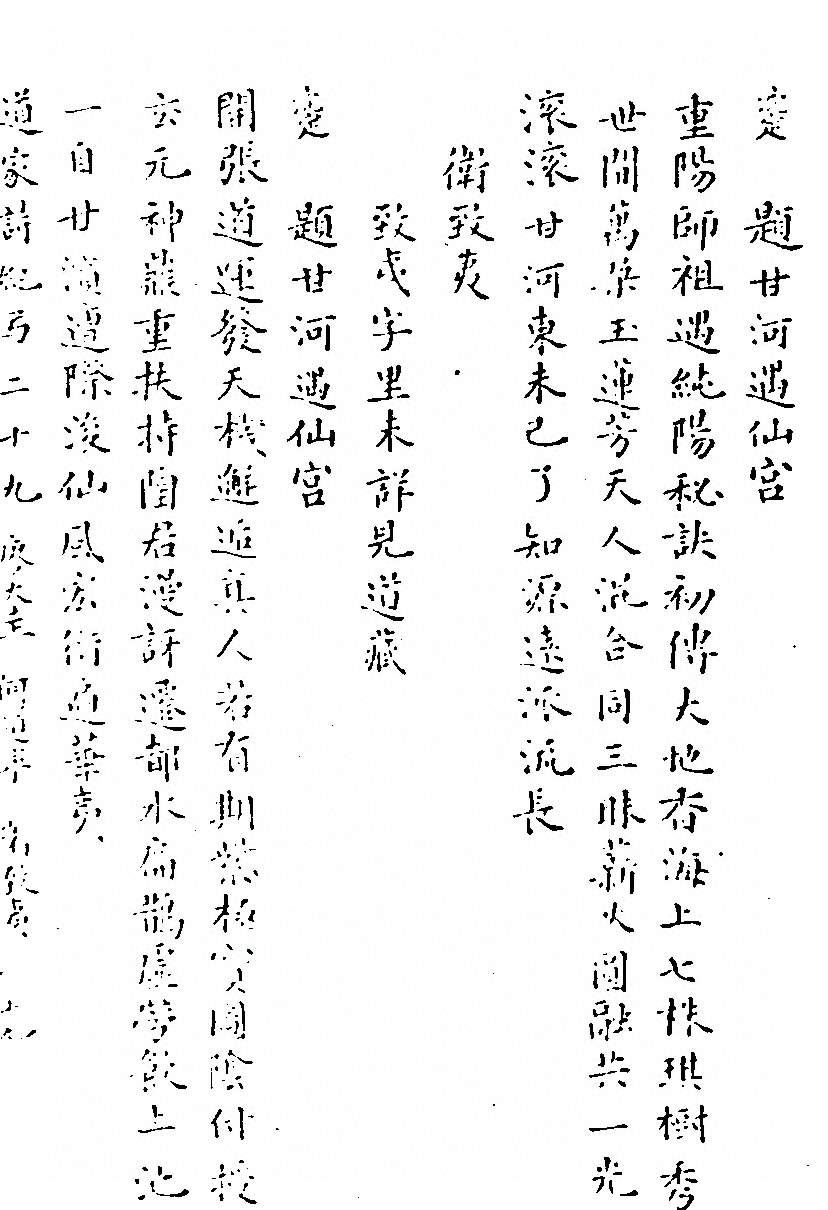 蹇　題甘河遇仙宮
重陽師祖遇純陽秘訣初傳大地香海上七株琪樹秀
世間萬朶玉蓮芳天人混合同三昧薪火圓融共一光
滾滾甘河東未已了知源遠派流長
衛致夷
致夷字里未詳見道藏
蹇　題甘河遇仙宮
開張道運發天機邂逅真人若有期紫極寶圖陰付授
玄元神龍重扶持聞君漫訝遷都水扁鵲虛勞飲上池
一自甘濱遭際後仙風玄術遍華夷
道家詩紀 二十九